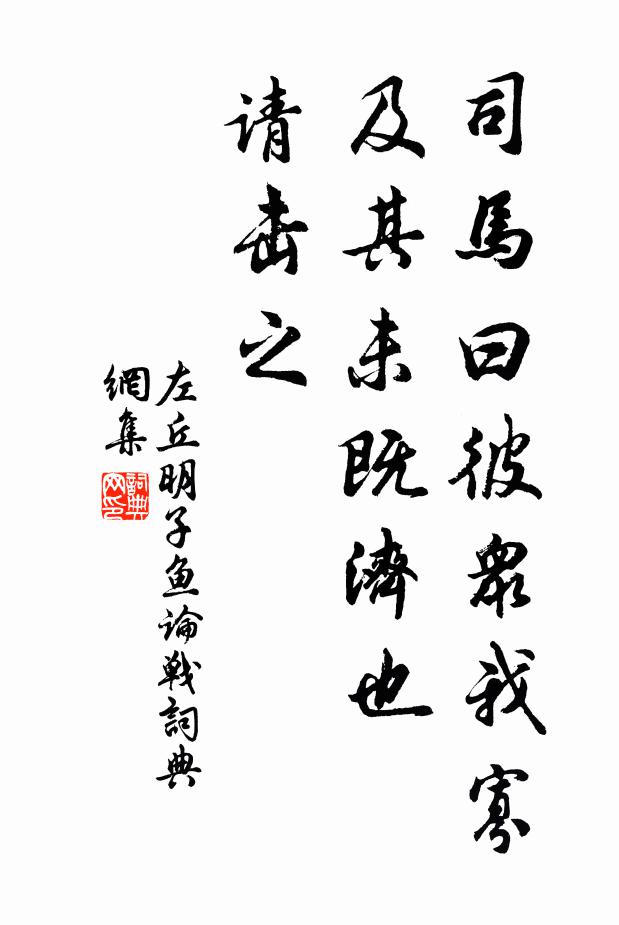 司馬曰彼衆我寡
及其未既濟也
请击之
左丘明子鱼論戰詞典
網集
詞典网印